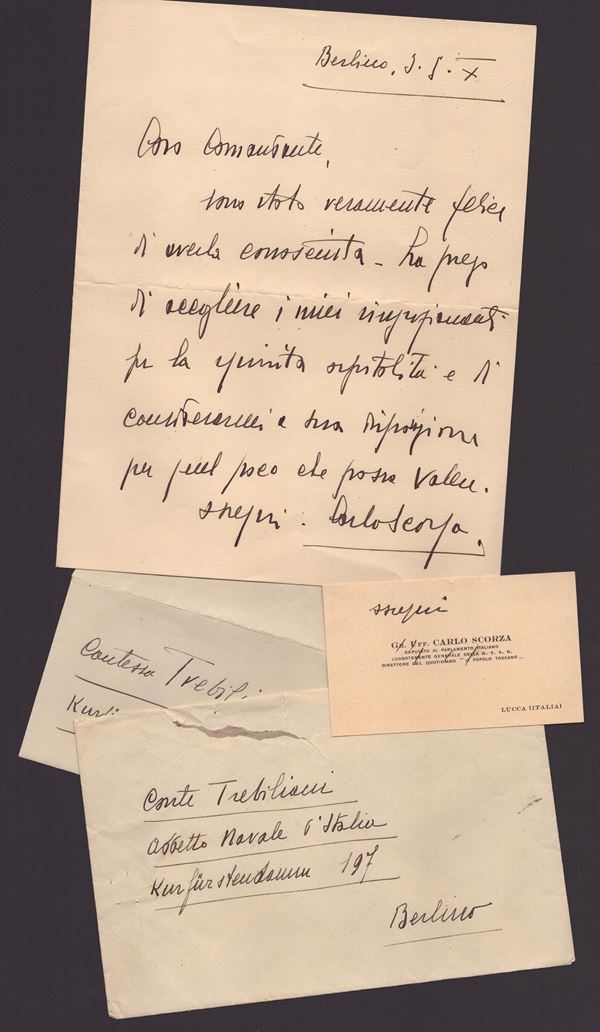 Berlino, 3. 5. X
Caro Comandante,
sono stato veramente felice
di averla conosciuta - La prego
di accogliere i miei ringraziamenti
per la squisita ospitalità e di
considerarmi a sua disposizione
per quel poco che possa valere.
ossequi. Carlo Scorza.
ossequi
GR. UFF. CARLO SCORZA
DEPUTATO AL PARLAMENTO ITALIANO
LUOGOTENENTE GENERALE DELLA M. V. S. N.
DIRETTORE DEL QUOTIDIANO "IL POPOLO TOSCANO"
LUCCA (ITALIA)
Contessa Trebili
Kurf
Conte Trebiliani
addetto Navale d'Italia
Kurfürstendamm 197
Berlino